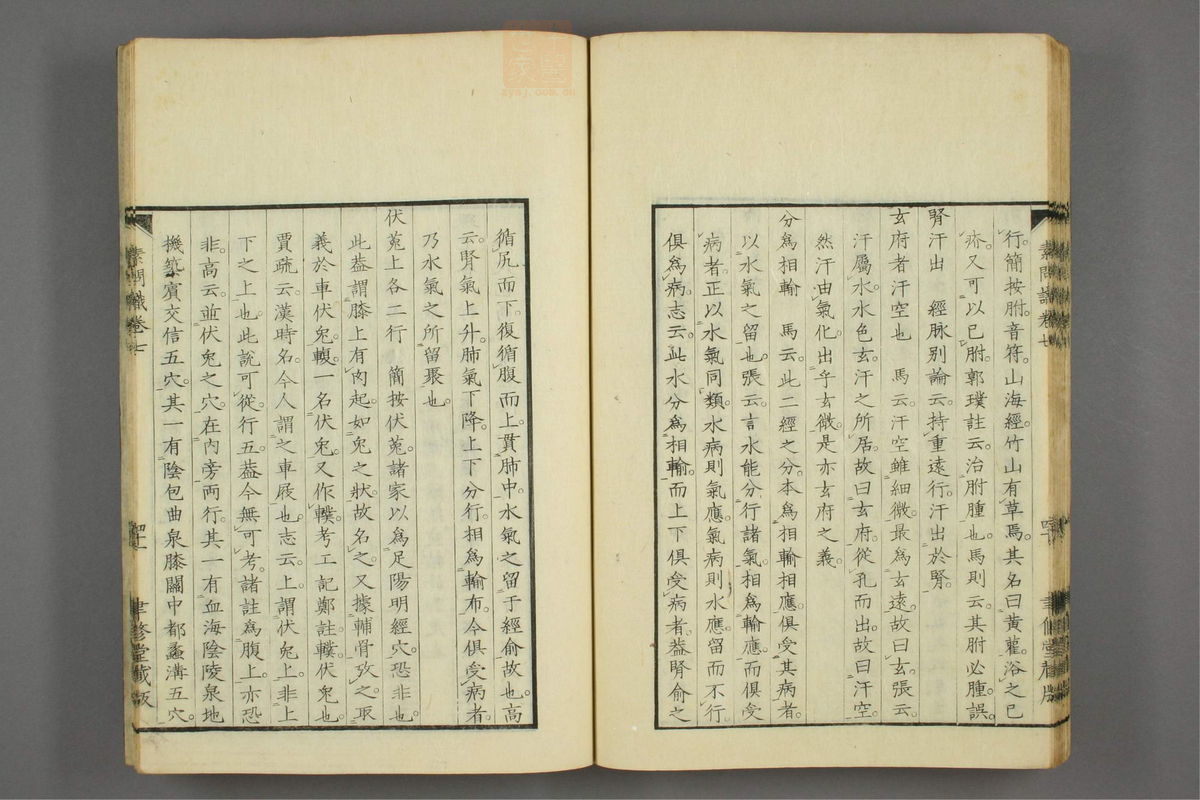 行。簡按胕。音符。山海經竹山有草焉。其名曰黃雚。浴之已
疥。又可以已胕。郭璞註云。治胕腫也。馬則云。其胕必腫。誤。
腎汗出　經脉别論云。持重遠行。汗出於腎。
玄府者汗空也　馬云。汗空雖細微。最爲玄遠。故曰玄。張云。
汗屬水。水色玄。汗之所居。故曰玄府。從孔而出。故曰汗空。
然汗由氣化。出乎玄微。是亦玄府之義。
分爲相輸　馬云。此二經之分。本爲相輸相應。俱受其病者。
以水氣之留也。張云。言水能分行諸氣。相爲輸應。而俱受
病者。正以水氣同類。水病則氣應。氣病則水應。留而不行。
俱爲病。志云。此水分爲相輸。而上下俱受病者。葢腎俞之
循尻而下。復循腹而上。貫肺中。水氣之留于經俞故也。高
云。腎氣上升。肺氣下降。上下分行。相爲輸布。今俱受病者
乃水氣之所留聚也。
伏菟上各二行　簡按伏菟。諸家以爲足陽明經穴。恐非也。
此葢謂膝上有肉起如兔之狀。故名之。又據輔骨攷之。取
義於車伏兔。輹一名伏兔。又作轐。考工記鄭註。轐。伏兔也。
賈疏云。漢時名。今人謂之車屐也。志云。上。謂伏兔上。非上
下之上也。此說可從。行五葢今無可考。諸註爲腹上。亦恐
非。高云。並伏兔之穴。在內旁兩行。其一有血海陰陵泉地
機築賓交信五穴。其一有陰包曲泉膝關中都蠡溝五穴。
素問識卷七
聿修堂藏版